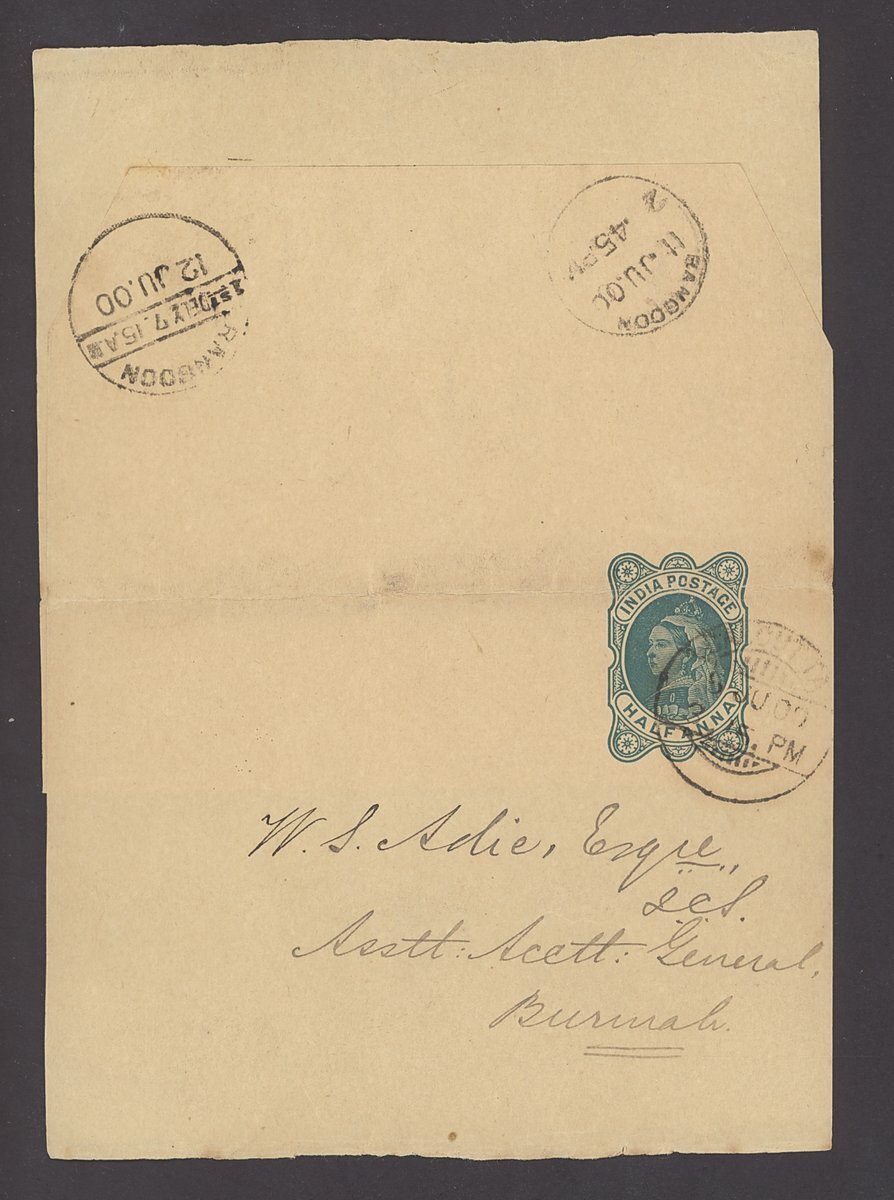 RANGOON
1ST DELY 7.15 A.M
12 JU.00
RANGOON
11 JU.00
.45 PM
2
INDIA POSTAGE
HALF ANNA
JU 00
PM
W. S. Adie, Esqre,,
ICS.
Asstt: Acctt: General,
Burmah.